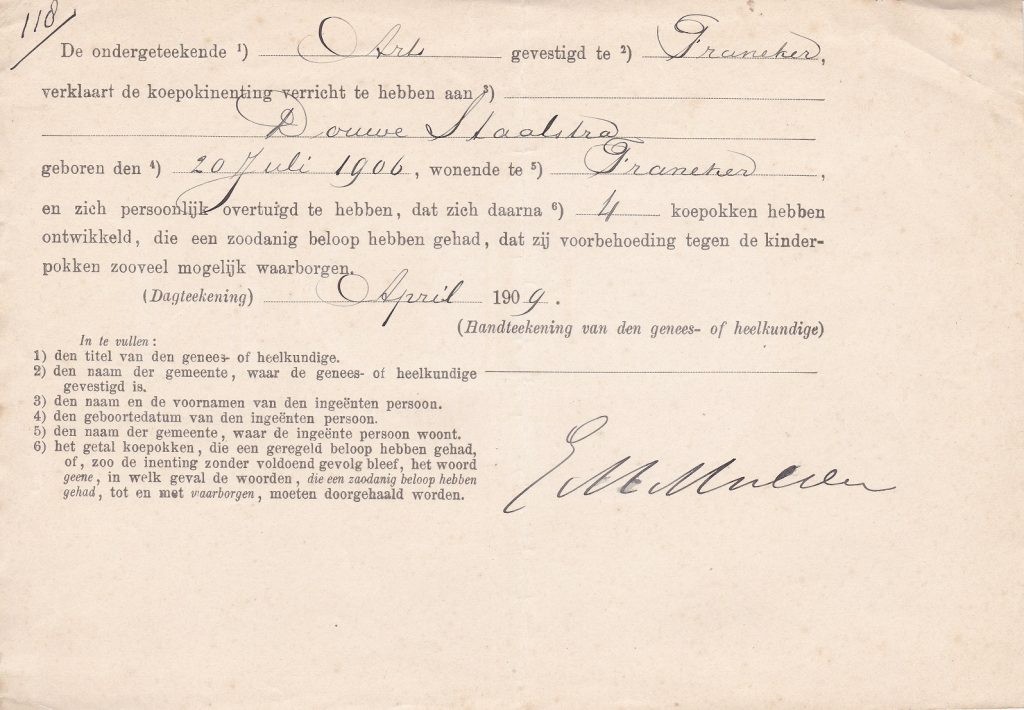 118
De ondergeteekende ¹) Arts gevestigd te ²) Franeker,
verklaart de koepokinenting verricht te hebben aan ³)
Douwe Staalstra
geboren den ⁴) 20 Juli 1906, wonende te ⁵) Franeker,
en zich persoonlijk overtuigd te hebben, dat zich daarna ⁶) 4 koepokken hebben
ontwikkeld, die een zoodanig beloop hebben gehad, dat zij voorbehoeding tegen de kinder-
pokken zooveel mogelijk waarborgen.
(Dagteekening) April 1909.
(Handteekening van den genees- of heelkundige)
In te vullen:
1) den titel van den genees- of heelkundige.
2) den naam der gemeente, waar de genees- of heelkundige
gevestigd is.
3) den naam en de voornamen van den ingeënten persoon.
4) den geboortedatum van den ingeënten persoon.
5) den naam der gemeente, waar de ingeënte persoon woont.
6) het getal koepokken, die een geregeld beloop hebben gehad,
of, zoo de inenting zonder voldoend gevolg bleef, het woord
geene, in welk geval de woorden, die een zaodanig beloop hebben
gehad, tot en met vaarborgen, moeten doorgehaald worden.
E M Mulder